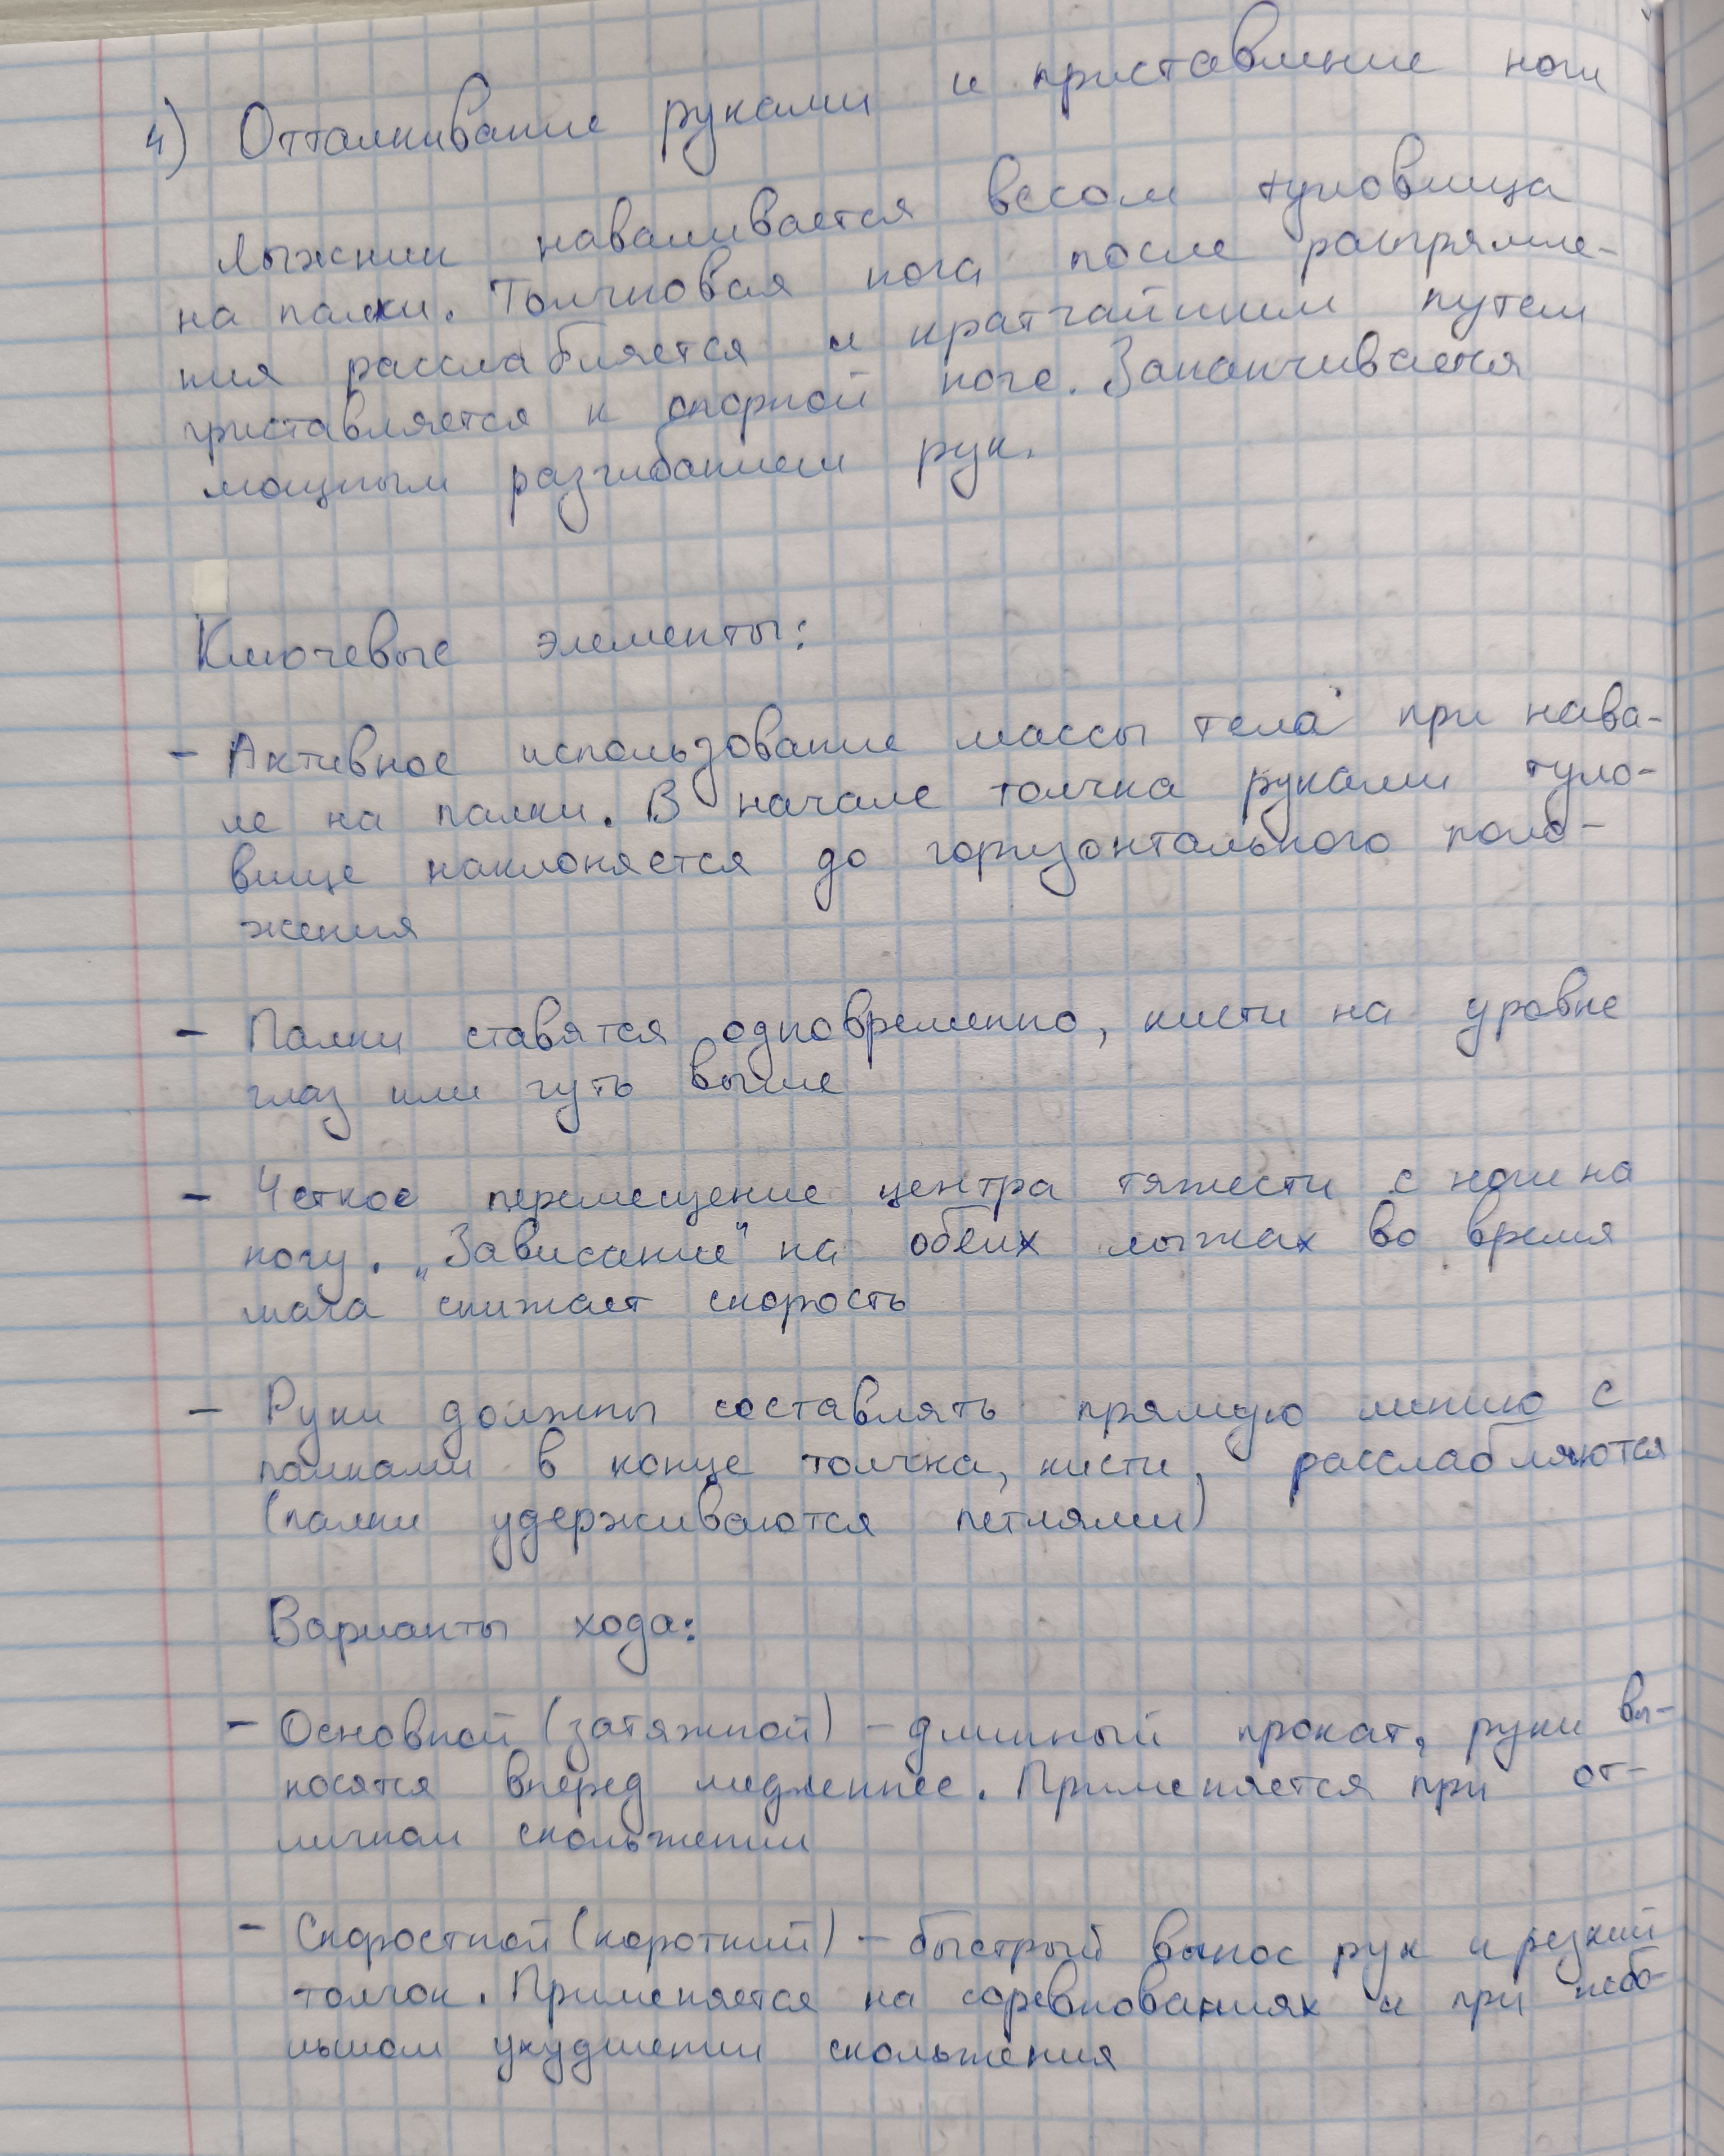 4) Отталкивание руками и приставление ноги
Лыжник наваливается весом туловища
на палки. Толчковая нога после распрямле-
ния расслабляется и кратчайшим путем
приставляется к опорной ноге. Заканчивается
мощным разгибанием рук.
Ключевые элементы:
- Активное использование массы тела при нава-
ле на палки. В начале толчка руками туло-
вище наклоняется до горизонтального поло-
жения
- Палки ставятся одновременно, кисти на уровне
глаз или чуть выше
- Четкое перемещение центра тяжести с ноги на
ногу. „Зависание" на обеих лыжах во время
шага снижает скорость
- Руки должны составлять прямую линию с
палками в конце толчка, кисти, расслабляются
(палки удерживаются петлями)
Варианты хода:
- Основной (затяжной) - длинный прокат, руки вы-
носятся вперед медленнее. Применяется при от-
личном скольжении
- Скоростной (короткий) - быстрый вынос рук и резкий
толчок. Применяется на соревнованиях и при небо-
льшом ухудшении скольжения